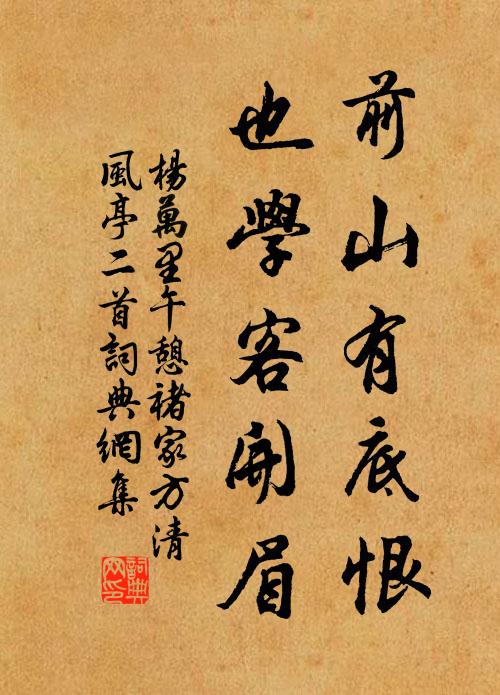 前山有底恨
也學客開眉
楊萬里午憩褚家方清
風亭二首詞典網集
詞典
网印